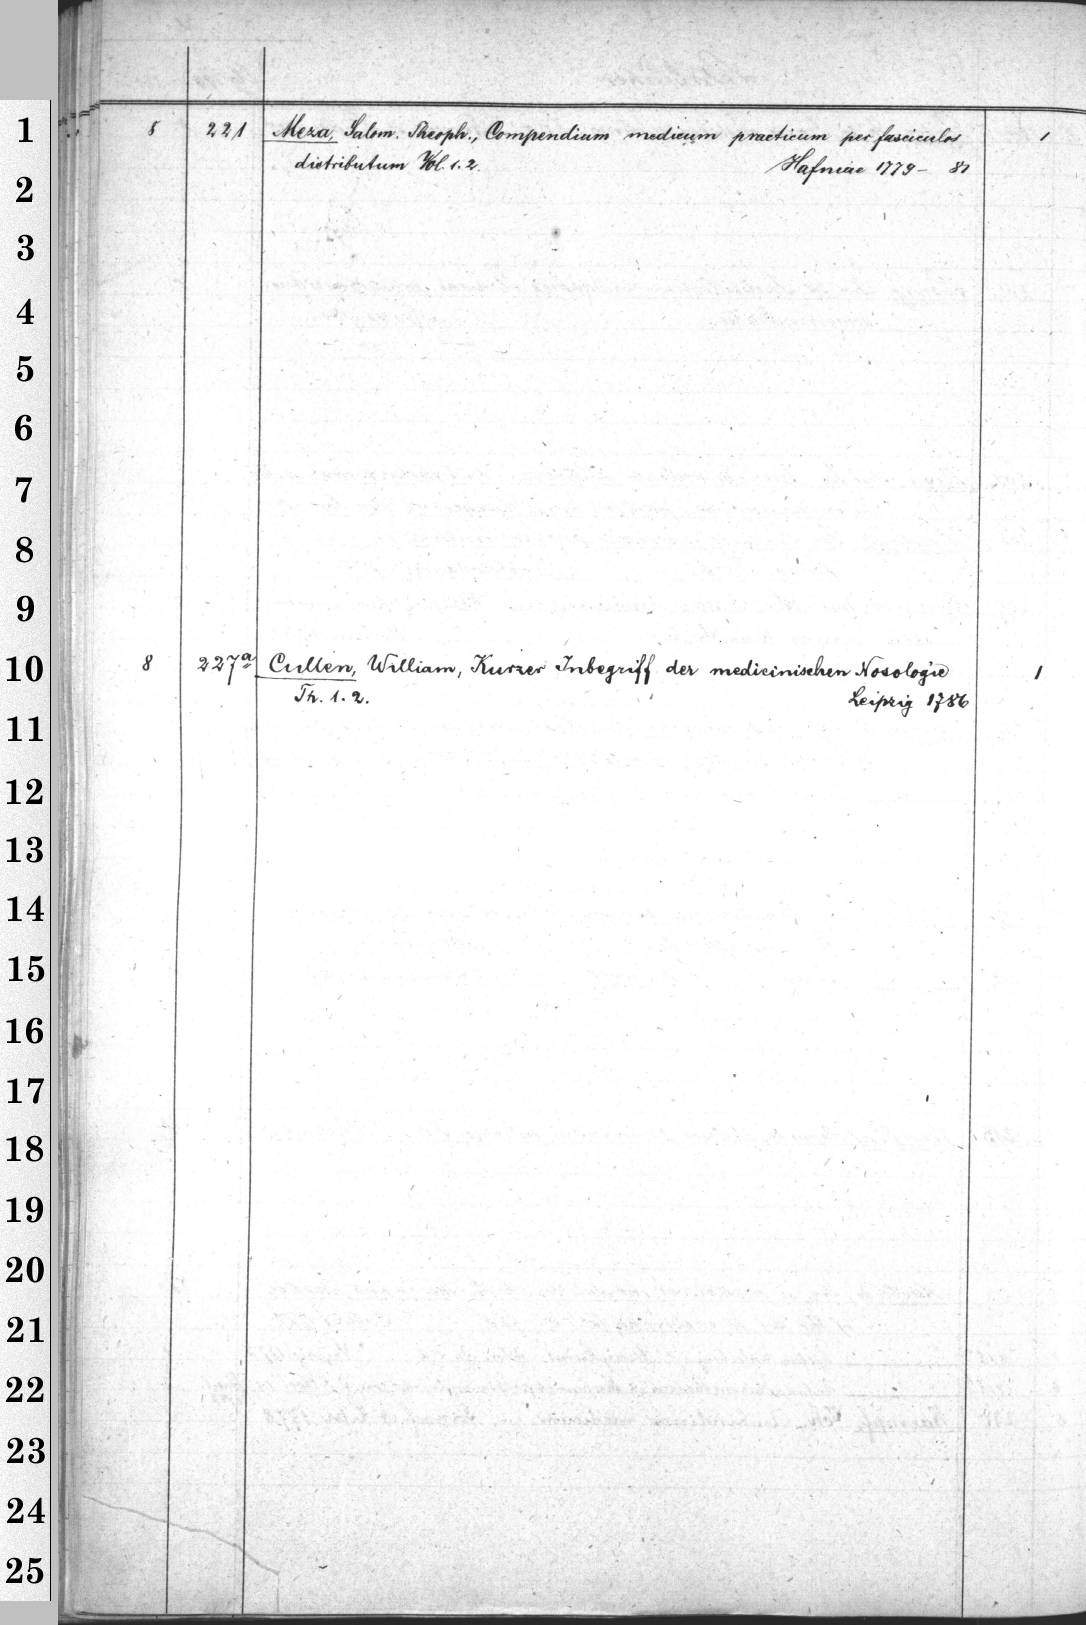 1 8 221 Meza, Salom. Theoph., Compendium medicum practicum per fasciculos 1
distributum Vol. 1. 2. Hafniae 1779 –
2
3
4
5
6
7
8
9
10 8 227a Cullen, William, Kurzer Inbegriff der medicinischen Nosologie 1
Th. 1. 2. Leipzig 1786
11
12
13
14
15
16
17
18
19
20
21
22
23
24
25